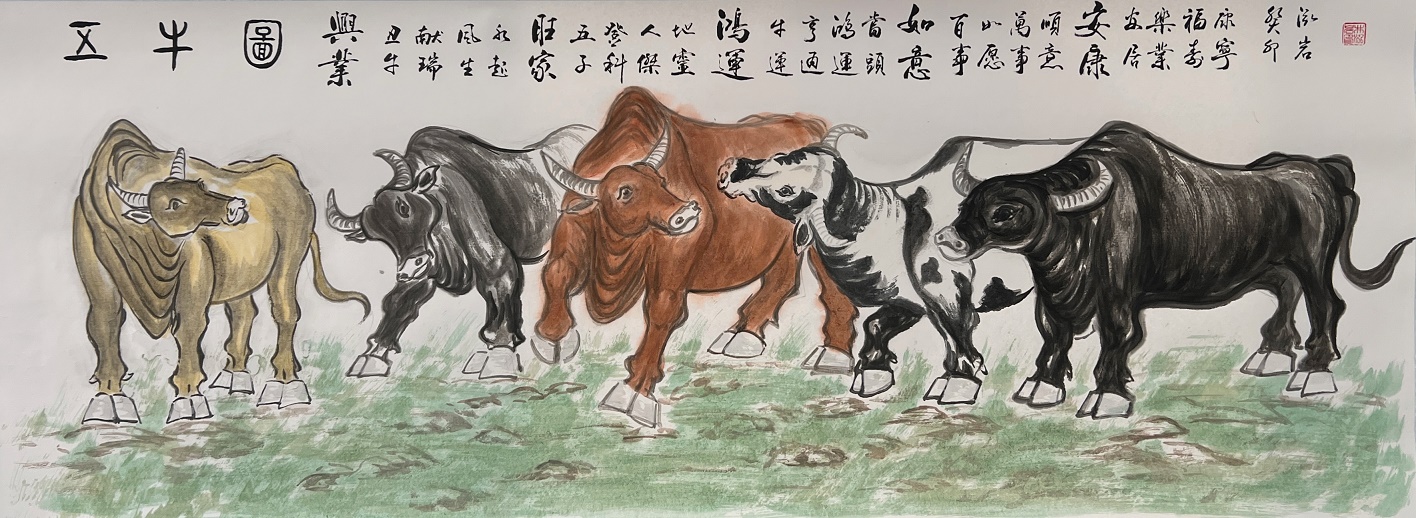 五牛圖
興業
丑牛
献瑞
风生
水起
旺家
五子
登科
人傑
地靈
鴻運
牛運
亨通
鴻運
當頭
如意
百事
如愿
萬事
順意
安康
安居
樂業
福壽
康寧
癸卯
泓岩